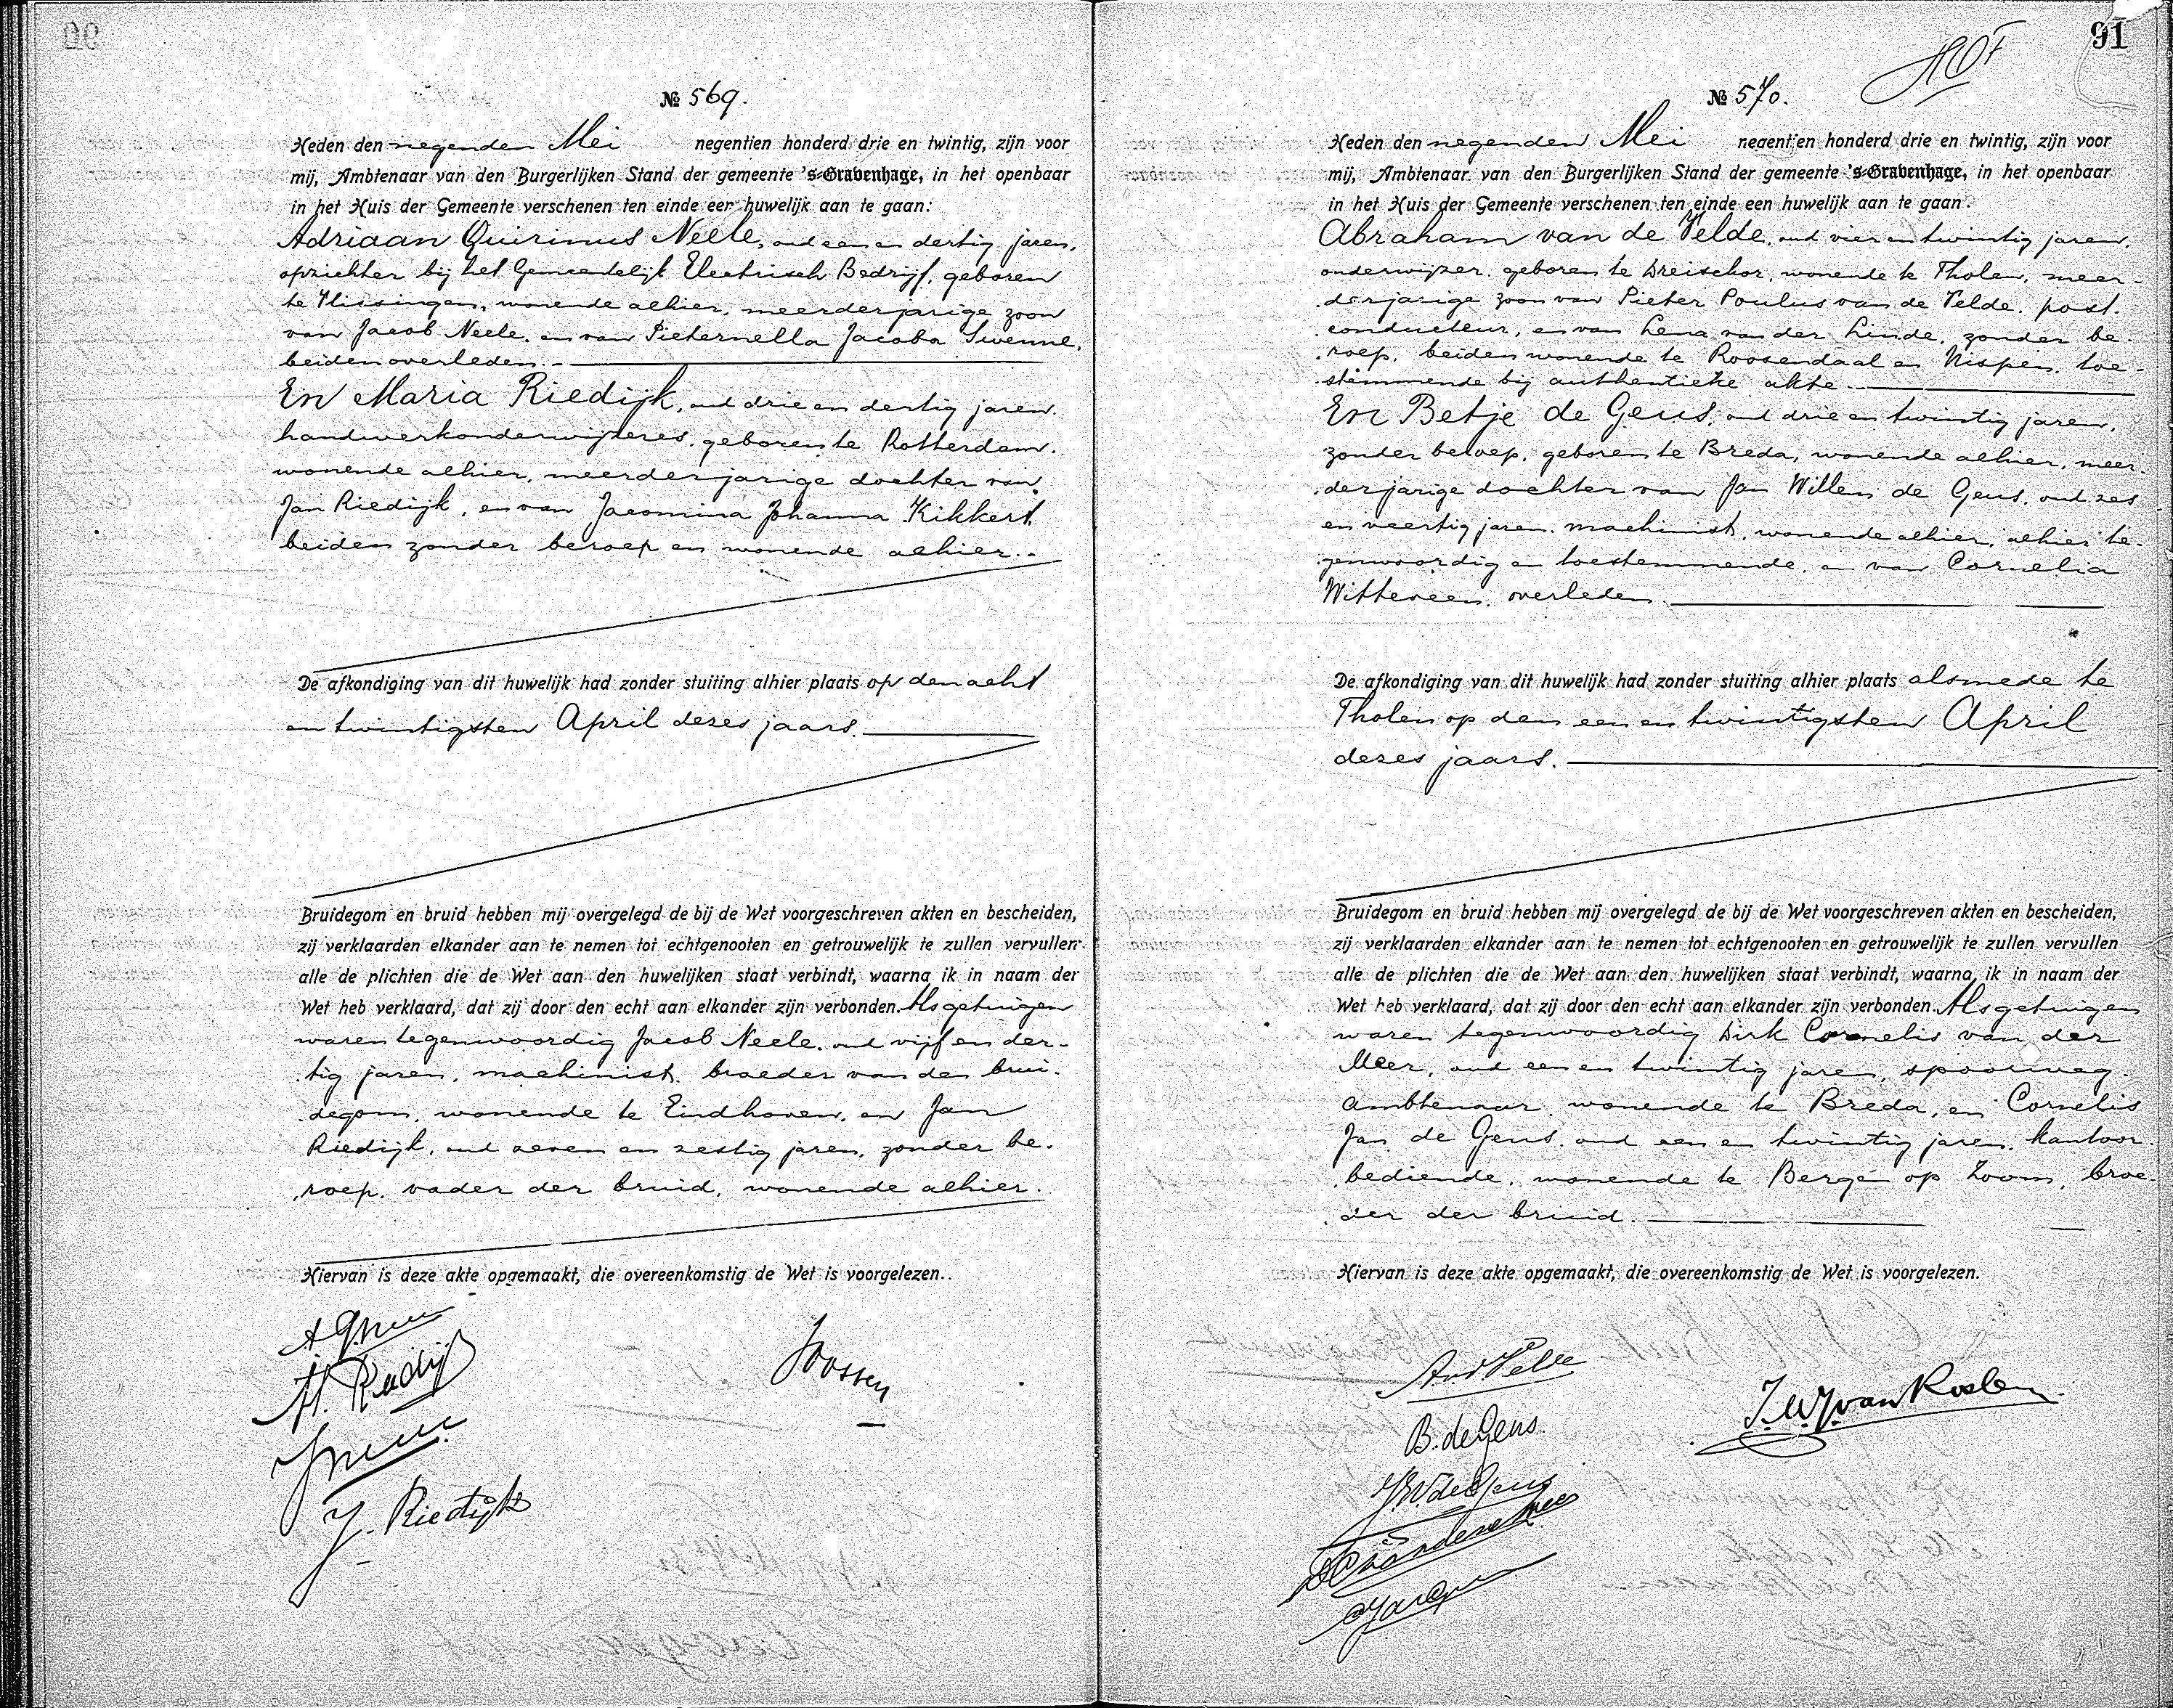 № 569.
Heden den negenden Mei negentien honderd drie en twintig, zijn voor
mij, Ambtenaar van den Burgerlijken Stand der gemeente 's-Gravenhage, in het openbaar
in het Huis der Gemeente verschenen ten einde een huwelijk aan te gaan:
Adriaan Quirinus Neele, oud een en dertig jaren,
opzichter bij het Gemeentelijk Electrisch Bedrijf, geboren
te Vlissingen, wonende alhier, meerderjarige zoon
van Jacob Neele, en van Pieternella Jacoba Swenne,
beiden overleden.
En Maria Riedijk, oud drie en dertig jaren,
handwerkonderwijzeres, geboren te Rotterdam,
wonende alhier, meerderjarige dochter van
Jan Riedijk, en van Jacomina Johanna Kikkert,
beiden zonder beroep en wonende alhier.
De afkondiging van dit huwelijk had zonder stuiting alhier plaats op den acht
en twintigsten April dezes jaars.
Bruidegom en bruid hebben mij overgelegd de bij de Wet voorgeschreven akten en bescheiden,
zij verklaarden elkander aan te nemen tot echtgenooten en getrouwelijk te zullen vervullen
alle de plichten die de Wet aan den huwelijken staat verbindt, waarna ik in naam der
Wet heb verklaard, dat zij door den echt aan elkander zijn verbonden. Als getuigen
waren tegenwoordig Jacob Neele, oud vijf en der-
tig jaren, machinist, broeder van den brui-
degom, wonende te Eindhoven, en Jan
Riedijk, oud zeven en zestig jaren, zonder be-
roep, vader der bruid, wonende alhier.
Hiervan is deze akte opgemaakt, die overeenkomstig de Wet is voorgelezen.
Joossen
J. Riedijk
91
№ 570.
Heden den negenden Mei negentien honderd drie en twintig, zijn voor
mij, Ambtenaar van den Burgerlijken Stand der gemeente 's-Gravenhage, in het openbaar
in het Huis der Gemeente verschenen ten einde een huwelijk aan te gaan:
Abraham van de Velde, oud vier en twintig jaren,
onderwijzer, geboren te Dreischor, wonende te Tholen, meer-
derjarige zoon van Pieter Poulus van de Velde, post-
conducteur, en van Lena van der Linde, zonder be-
roep, beiden wonende te Roosendaal en Nispen, toe-
stemmende bij authentieke akte.
En Betje de Geus, oud drie en twintig jaren,
zonder beroep, geboren te Breda, wonende alhier, meer-
derjarige dochter van Jan Willem de Geus, oud zes
en veertig jaren, machinist, wonende alhier, alhier te-
genwoordig en toestemmende, en van Cornelia
Witteveen, overleden.
De afkondiging van dit huwelijk had zonder stuiting alhier plaats alsmede te
Tholen op den een en twintigsten April
dezes jaars.
Bruidegom en bruid hebben mij overgelegd de bij de Wet voorgeschreven akten en bescheiden,
zij verklaarden elkander aan te nemen tot echtgenooten en getrouwelijk te zullen vervullen
alle de plichten die de Wet aan den huwelijken staat verbindt, waarna ik in naam der
Wet heb verklaard, dat zij door den echt aan elkander zijn verbonden. Als getuigen
waren tegenwoordig Dirk Cornelis van der
Meer, oud een en twintig jaren, spoorweg-
ambtenaar, wonende te Breda, en Cornelis
Jan de Geus, oud een en twintig jaren, kantoor-
bediende, wonende te Bergen op Zoom, broe-
der der bruid.
Hiervan is deze akte opgemaakt, die overeenkomstig de Wet is voorgelezen.
AvdVelde
B. de Geus
J.W. de Geus